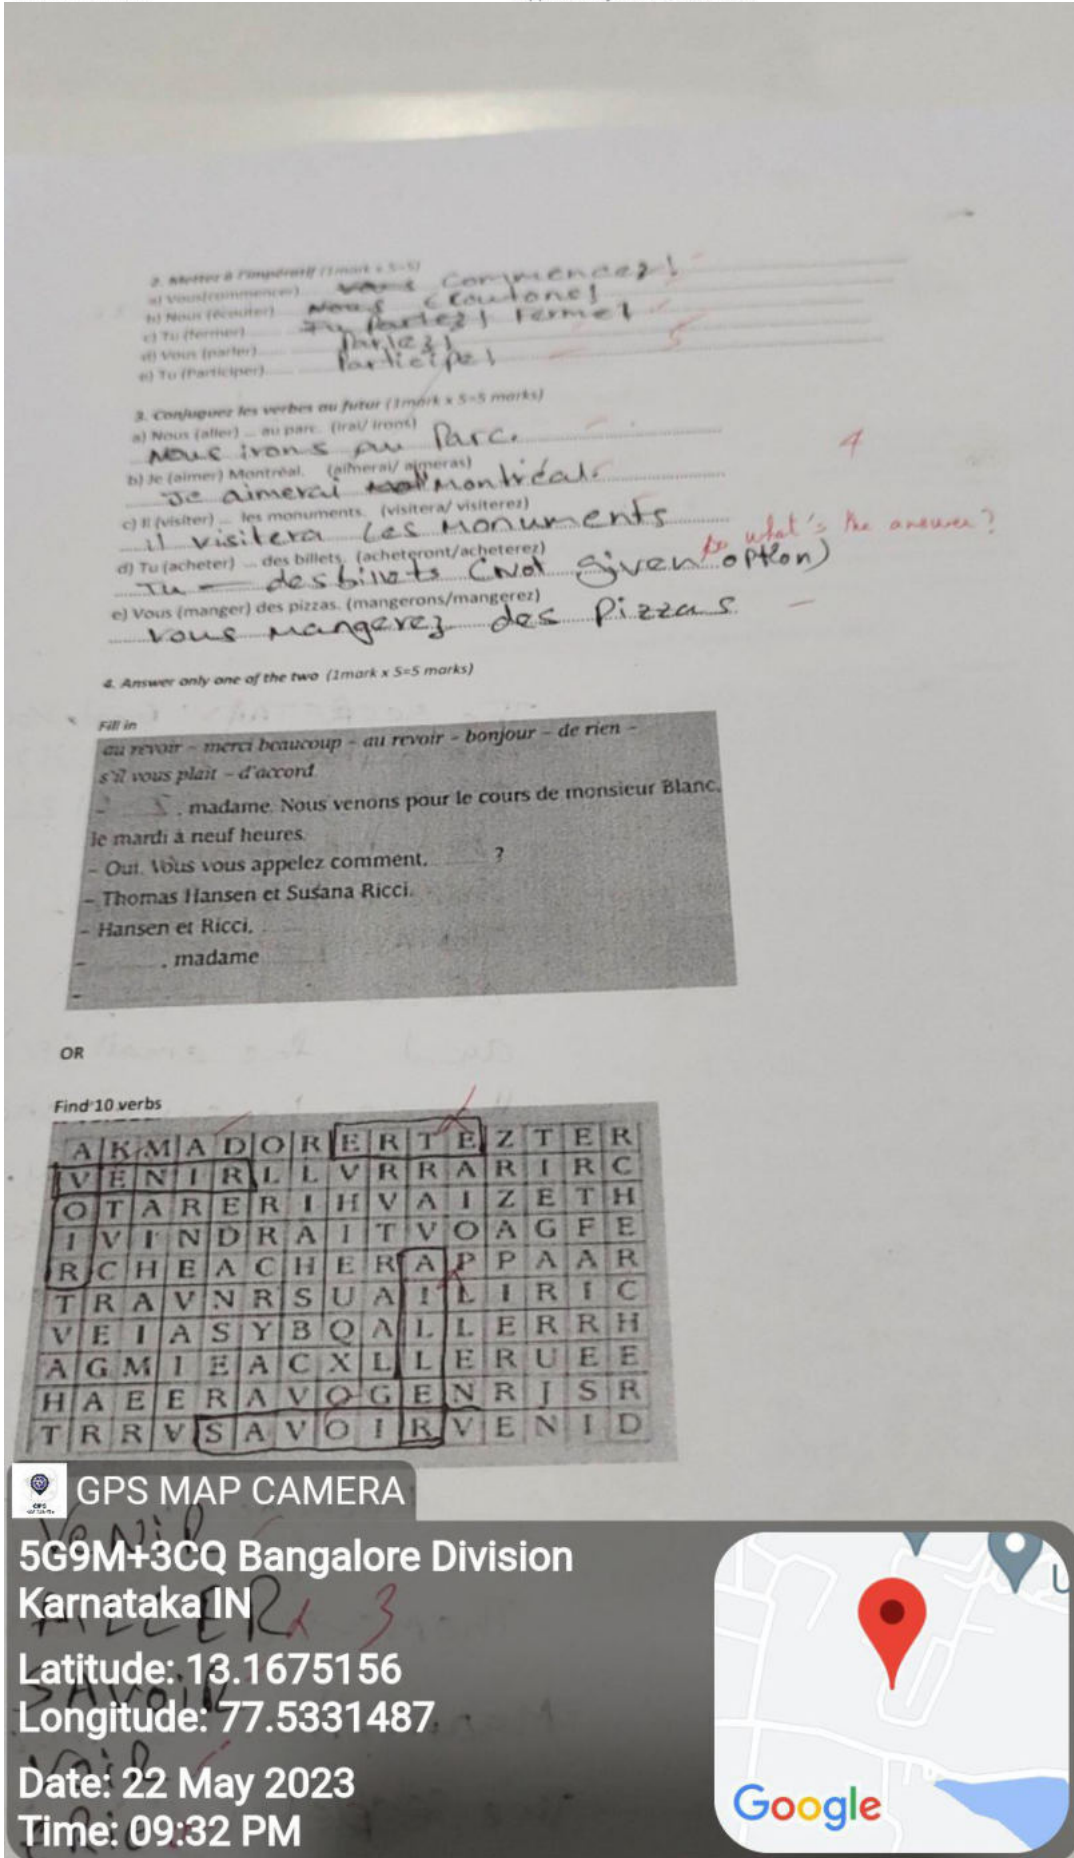 2. Metter à l'impératif (1mark x 5=5)
a) Vous(commencer) Commencez!
b) Nous (écouter)
c) Tu (fermer) Ferme!
d) Vous (parler) Parlez!
e) Tu (Participer) Participe!
3. Conjuguez les verbes au futur (1mark x 5=5 marks)
a) Nous (aller) ... au parc. (irai/ irons)
Nous irons au Parc.
b) Je (aimer) Montréal. (aimerai/ aimeras)
Je aimerai Montréal.
4
c) Il (visiter) ... les monuments. (visitera/ visiterez)
il visitera les Monuments
d) Tu (acheter) ... des billets. (acheteront/acheterez)
what's the answer?
Tu — des billets (Not given option)
e) Vous (manger) des pizzas. (mangerons/mangerez)
Vous mangerez des Pizzas.
4. Answer only one of the two (1mark x 5=5 marks)
Fill in
au revoir – merci beaucoup – au revoir – bonjour – de rien –
s'il vous plait – d'accord
, madame. Nous venons pour le cours de monsieur Blanc,
le mardi à neuf heures.
– Oui. Vous vous appelez comment, ?
– Thomas Hansen et Susana Ricci.
– Hansen et Ricci,
– , madame
–
OR
Find 10 verbs
A K M A D O R E R T E Z T E R
V E N I R L L V R R A R I R C
O T A R E R I H V A I Z E T H
I V I N D R A I T V O A G F E
R C H E A C H E R A P P A A R
T R A V N R S U A I L I R I C
V E I A S Y B Q A L L E R R H
A G M I E A C X L L E R U E E
H A E E R A V O G E N R J S R
T R R V S A V O I R V E N I D
GPS MAP CAMERA
VENIR
5G9M+3CQ Bangalore Division
Karnataka IN
ALLER 3
Latitude: 13.1675156
SAVOIR
Longitude: 77.5331487
VOIR
Date: 22 May 2023
Time: 09:32 PM
Google